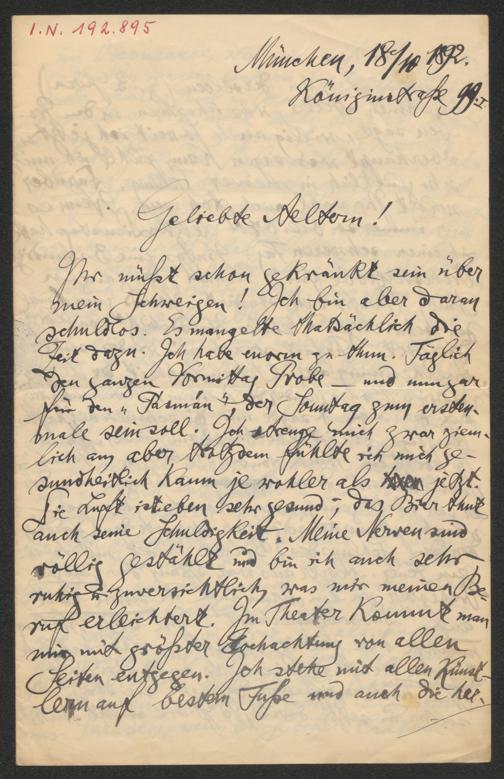 I.N. 192.895
München, 18/10 1892.
Königinstraße 99.I
Geliebte Aeltern!
Ihr müßt schon gekränkt sein über
mein Schweigen! Ich bin aber daran
schuldlos. Es mangelte thatsächlich die
Zeit dazu. Ich habe enorm zu thun. Täglich
den ganzen Vormittag Probe – und nun gar
für den „Pasmán“, der Sonntag zum ersten-
male sein soll. Ich strenge mich zwar ziem-
lich an, aber trotzdem fühlte ich mich ge-
sundheitlich kaum je wohler als jetzt.
Die Luft ist eben sehr gesund; das Bier thut
auch seine Schuldigkeit. Meine Nerven sind
völlig gestählt und bin ich auch sehr
ruhig u. zuversichtlich, was mir meinen Be-
ruf erleichtert. Im Theater kommt man
mir mit größter Hochachtung von allen
Seiten entgegen. Ich stehe mit allen Künst-
lern auf bestem Fuße und auch die her-